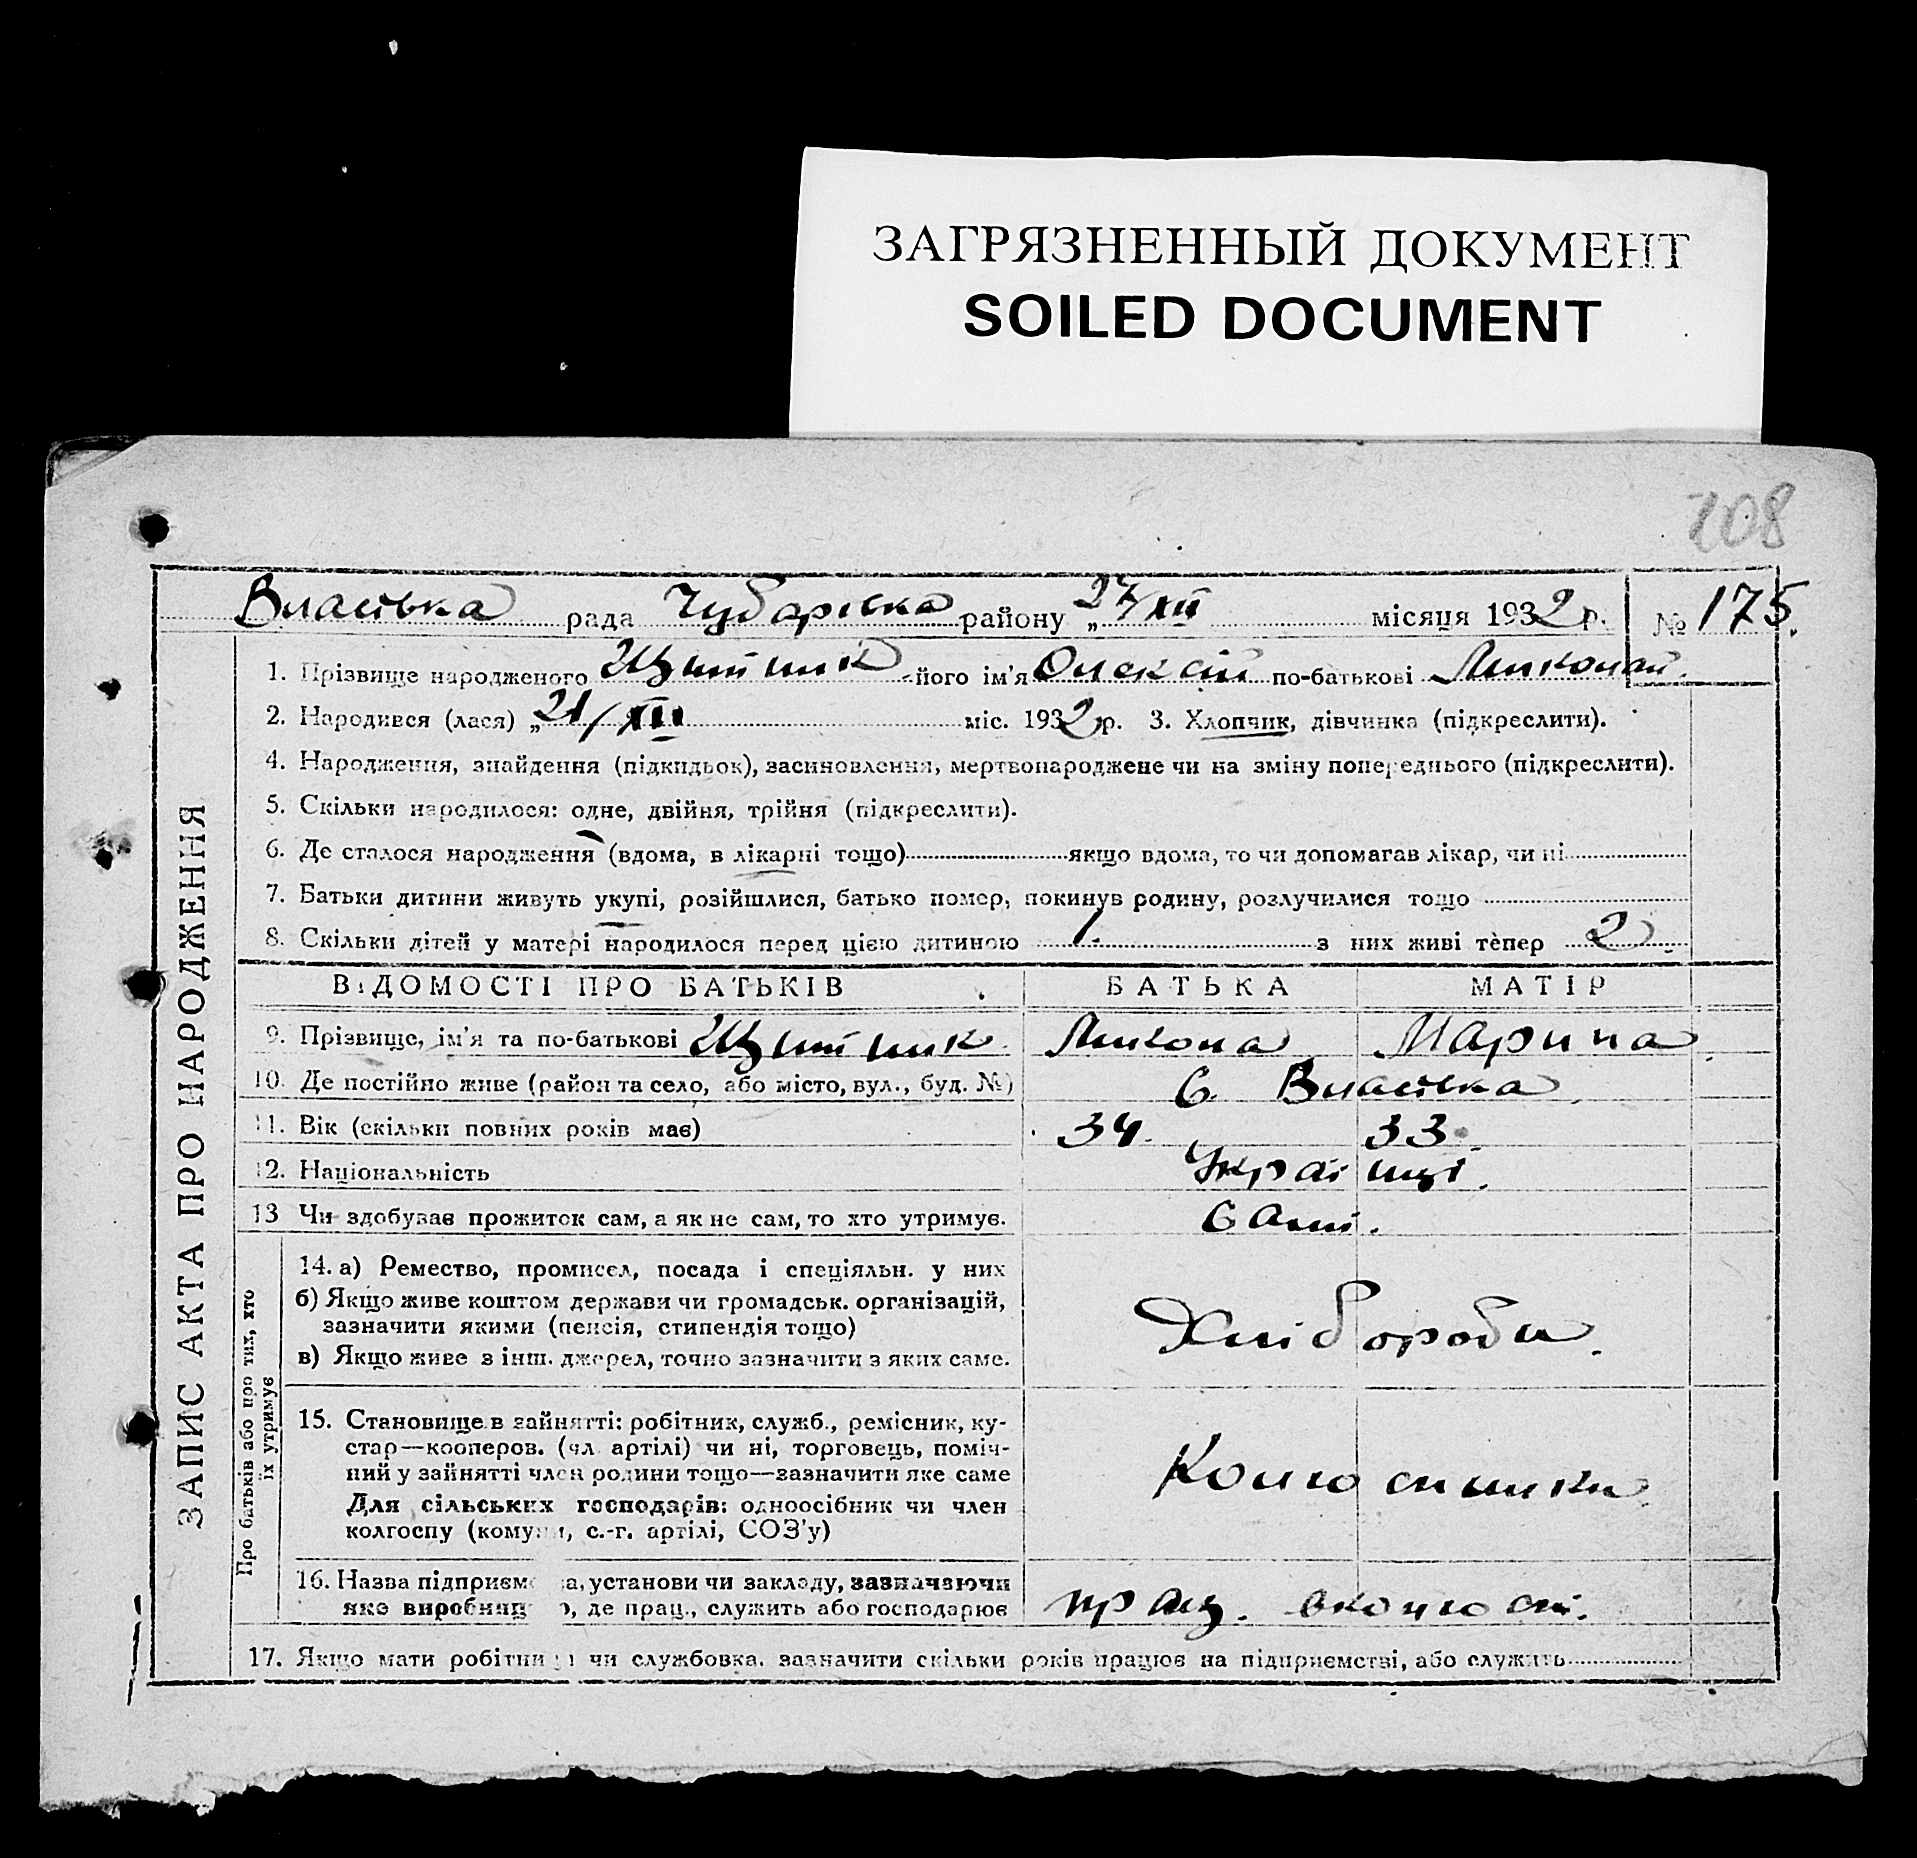 ЗАГРЯЗНЕННЫЙ ДОКУМЕНТ
SOILED DOCUMENT
208
Власівка рада Чубарівка району „27/XII місяця 1932 р. № 175.
ЗАПИС АКТА ПРО НАРОДЖЕННЯ
1. Прізвище народженого його ім'я Олексій по-батькові Миколай.
2. Народився (лася) „21/XII міс. 1932 р. 3. Хлопчик, дівчинка (підкреслити).
4. Народження, знайдення (підкидьок), засиновлення, мертвонароджене чи на зміну попереднього (підкреслити).
5. Скільки народилося: одне, двійня, трійня (підкреслити).
6. Де сталося народження (вдома, в лікарні тощо) якщо вдома, то чи допомагав лікар, чи ні
7. Батьки дитини живуть укупі, розійшлися, батько помер, покинув родину, розлучилися тощо
8. Скільки дітей у матері народилося перед цією дитиною 1. з них живі тепер 2.
ВІДОМОСТІ ПРО БАТЬКІВ БАТЬКА МАТІР
9. Прізвище, ім'я та по-батькові Микола Марина.
10. Де постійно живе (район та село, або місто, вул., буд. №) с. Власівка.
11. Вік (скільки повних років має) 34. 33.
12. Національність Українці.
13 Чи здобував прожиток сам, а як не сам, то хто утримує. Самі.
Про батьків або про тих, хто
їх утримує
14. а) Ремество, промисел, посада і спеціяльн. у них
б) Якщо живе коштом держави чи громадськ. організацій,
зазначити якими (пенсія, стипендія тощо)
в) Якщо живе з інш. джерел, точно зазначити з яких саме.
Хлібороби.
15. Становище в зайнятті: робітник, служб., ремісник, ку-
стар—кооперов. (чл. артілі) чи ні, торговець, поміч-
ний у зайнятті член родини тощо—зазначити яке саме
Для сільських господарів: одноосібник чи член
колгоспу (комуни, с.-г. артілі, СОЗ'у)
16. Назва підприємства, установи чи закладу, зазначаючи
яке виробництво, де прац., служить або господарює
прац. в колгоспі.
17. Якщо мати робітниця чи службовка, зазначити скільки років працює на підприємстві, або служить